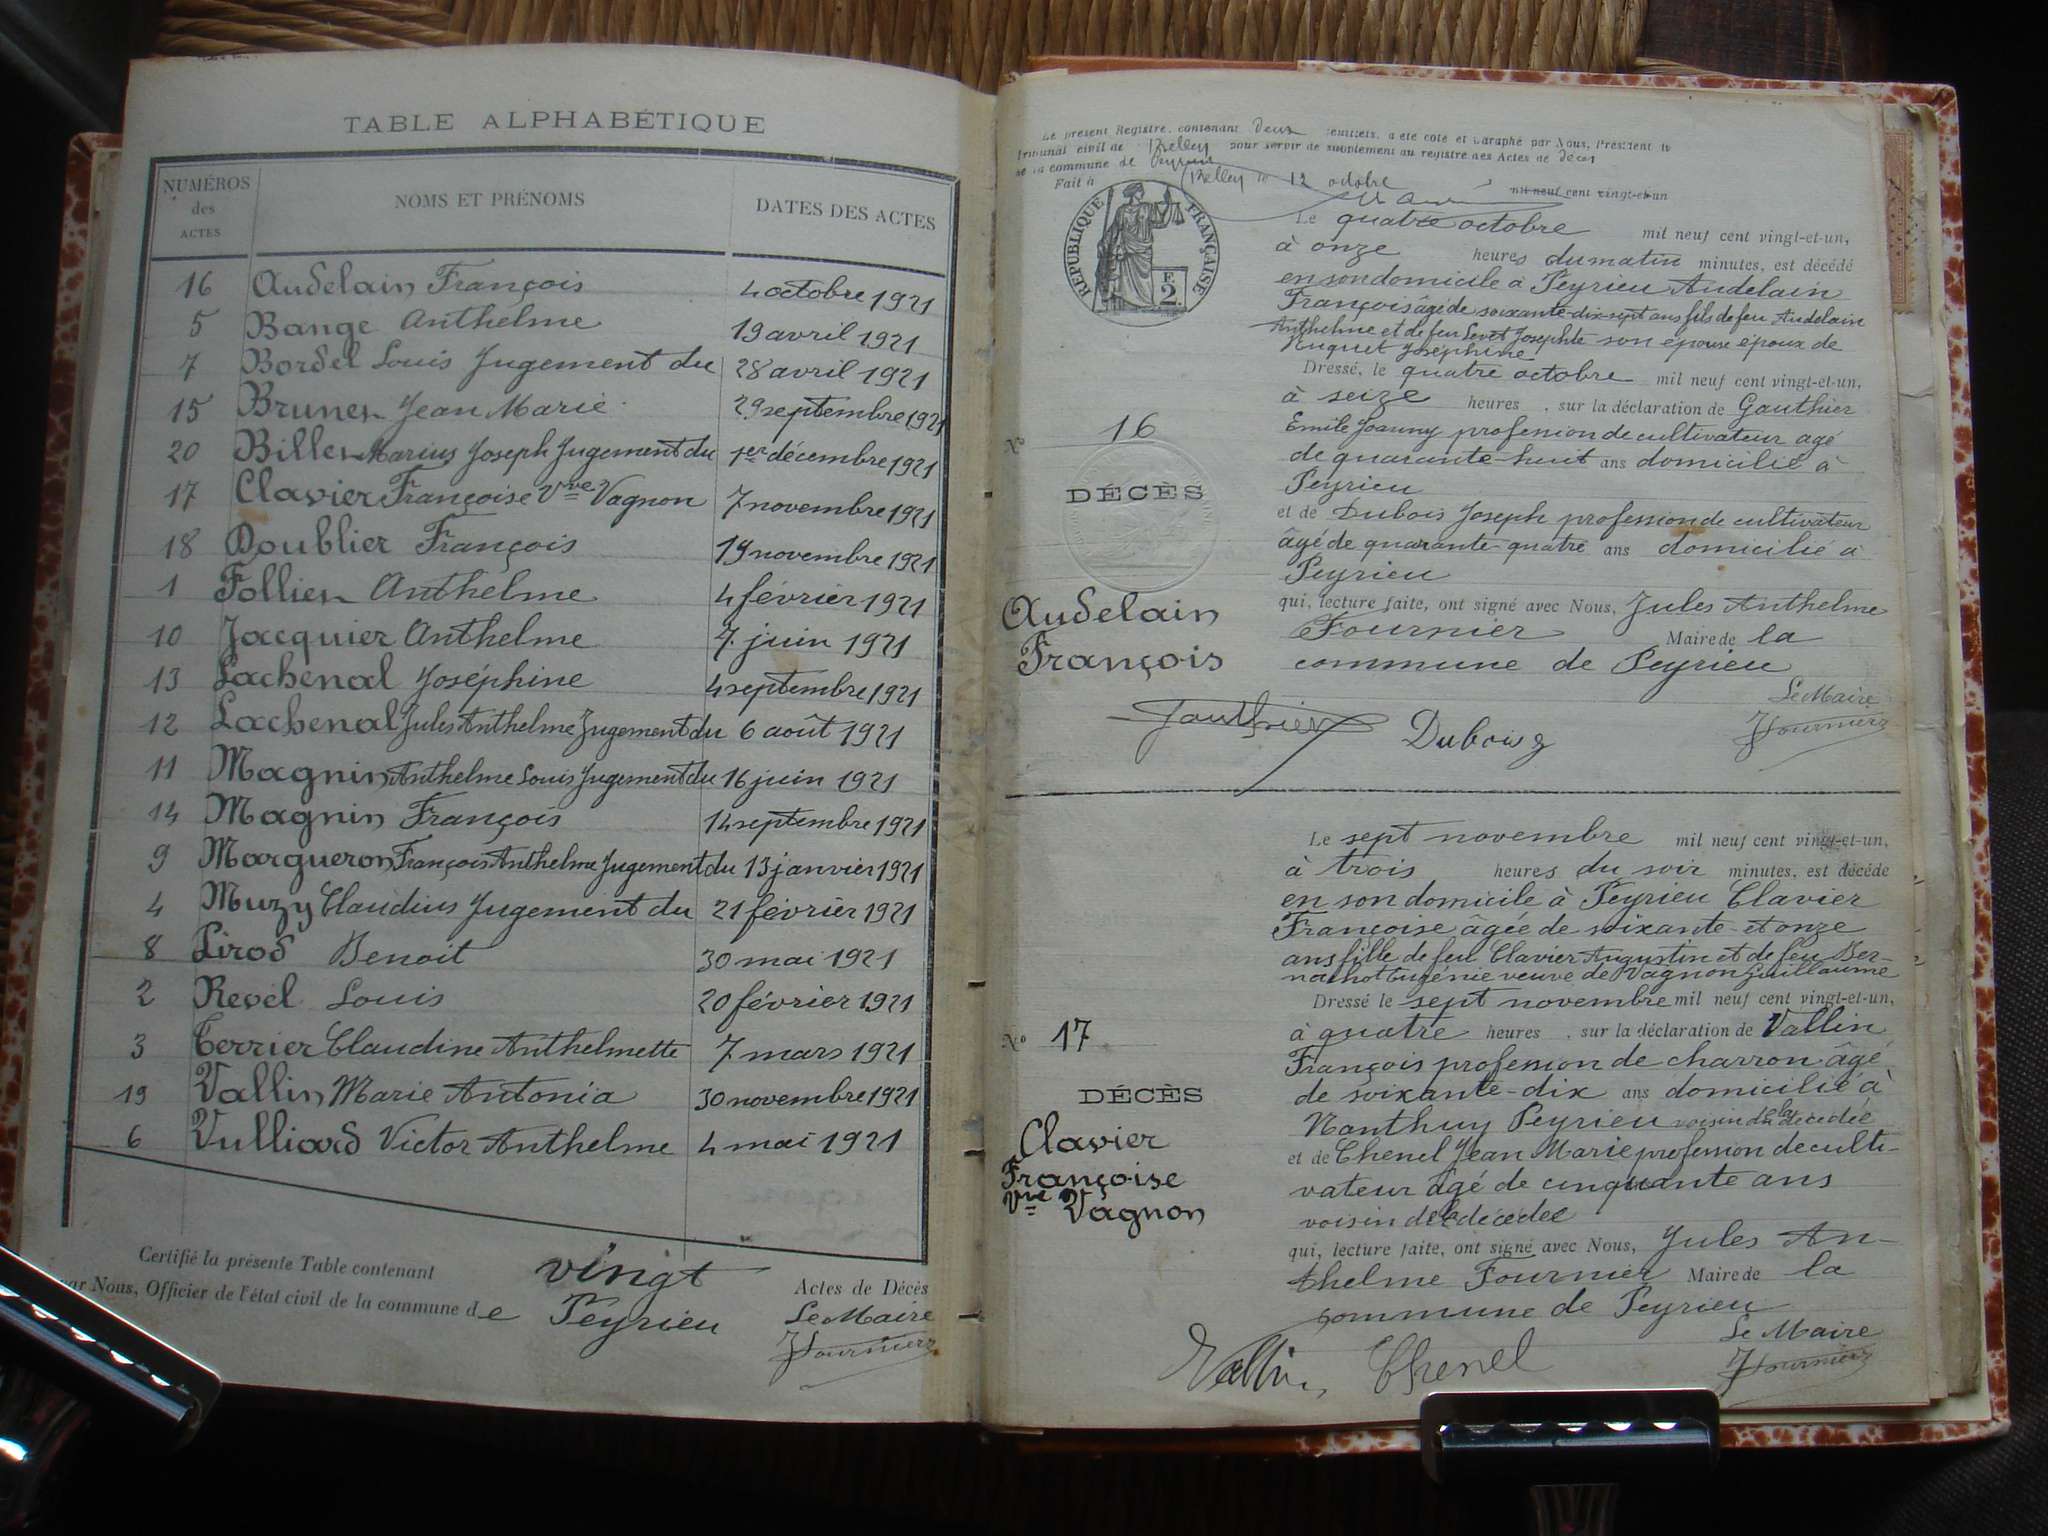 TABLE ALPHABÉTIQUE
NUMÉROS des ACTES NOMS ET PRÉNOMS DATES DES ACTES
16 Audelain François 4 octobre 1921
5 Bange Anthelme 19 avril 1921
7 Bordel Louis Jugement du 28 avril 1921
15 Brunet Jean Marie 29 septembre 1921
20 Billet Marius Joseph Jugement du 1er décembre 1921
17 Clavier Françoise Vve Vagnon 7 novembre 1921
18 Doublier François 19 novembre 1921
1 Follien Anthelme 4 février 1921
10 Jacquier Anthelme 7 juin 1921
13 Lachenal Joséphine 4 septembre 1921
12 Lachenal Jules Anthelme Jugement du 6 août 1921
11 Magnin Anthelme Louis Jugement du 16 juin 1921
14 Magnin François 14 septembre 1921
9 Margueron François Anthelme Jugement du 13 janvier 1921
4 Muzy Claudius Jugement du 21 février 1921
8 Pirod Benoit 30 mai 1921
2 Revel Louis 20 février 1921
3 Terrier Claudine Anthelmette 7 mars 1921
19 Vallin Marie Antonia 30 novembre 1921
6 Vulliard Victor Anthelme 4 mai 1921
Certifié la présente Table contenant vingt Actes de Décès
par Nous, Officier de l'état civil de la commune de Peyrieu Le Maire
JFournier
Le présent Registre, contenant Deux feuillets, a été coté et paraphé par Nous, Président du
Tribunal civil de Belley pour servir de supplément au registre des Actes de décès
de la commune de Peyrieu
Fait à Belley le 12 octobre mil neuf cent vingt-et-un
RÉPUBLIQUE FRANÇAISE
F. 2
Le quatre octobre mil neuf cent vingt-et-un,
à onze heures du matin minutes, est décédé
en son domicile à Peyrieu Audelain
François âgé de soixante-dix-sept ans fils de feu Audelain
Anthelme et de feu Levet Josephte son épouse époux de
Huguet Joséphine
Dressé, le quatre octobre mil neuf cent vingt-et-un,
à seize heures, sur la déclaration de Gauthier
Emile Joanny profession de cultivateur agé
de quarante-huit ans domicilié à
Peyrieu
et de Dubois Joseph profession de cultivateur
âgé de quarante quatre ans domicilié à
Peyrieu
qui, lecture faite, ont signé avec Nous, Jules Anthelme
Fournier Maire de la
commune de Peyrieu
Le Maire
JFournier
No 16
DÉCÈS
Audelain
François
Gauthier Dubois
Le sept novembre mil neuf cent vingt-et-un,
à trois heures du soir minutes, est décédé
en son domicile à Peyrieu Clavier
Françoise âgée de soixante-et onze
ans fille de feu Clavier Augustin et de feu Ber-
nachot Eugénie veuve de Vagnon Guillaume
Dressé le sept novembre mil neuf cent vingt-et-un,
à quatre heures, sur la déclaration de Vallin
François profession de charron âgé
de soixante-dix ans domicilié à
Nanthuy Peyrieu voisin de la décédée
et de Chenel Jean Marie profession de culti-
vateur âgé de cinquante ans
voisin de la décédée
qui, lecture faite, ont signé avec Nous, Jules An-
thelme Fournier Maire de la
commune de Peyrieu
Le Maire
JFournier
No 17
DÉCÈS
Clavier
Françoise
Vve Vagnon
Vallin Chenel